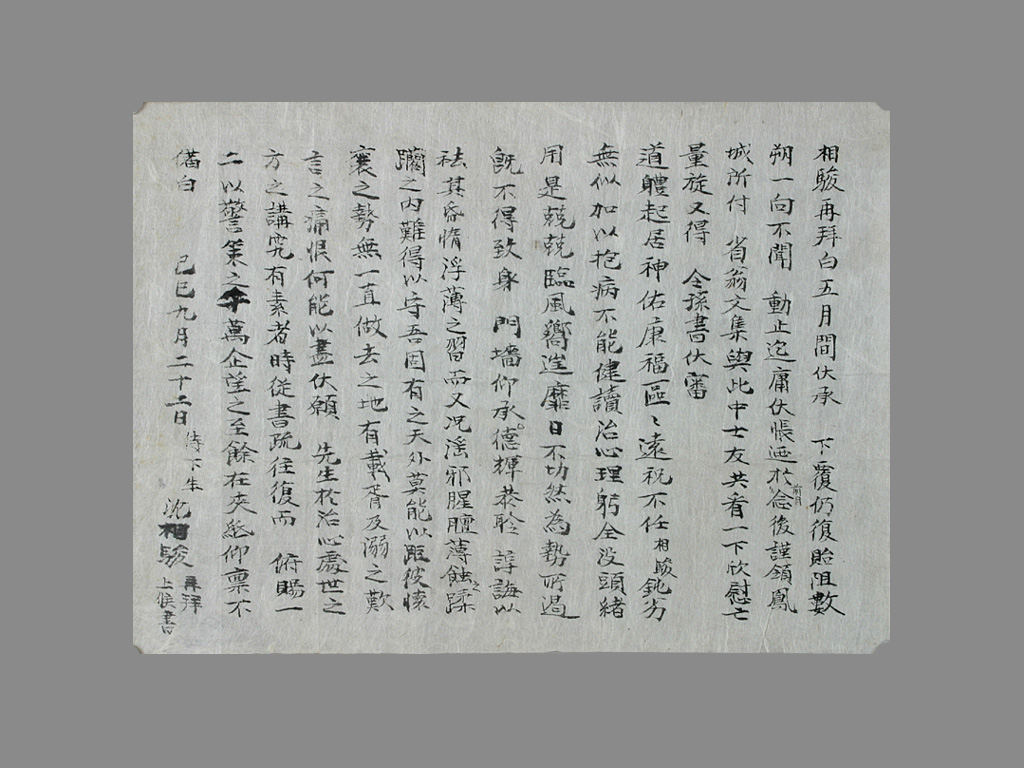 相駿再拜白五月間伏承 下覆仍復貽阻數
朔一向不聞 動止迨庸伏悵逦於念後謹領鳳
前月
城所付 省翁文集與此中士友共看一下欣慰亡
量旋又得 令孫書伏審
道軆起居神佑康福區〻遠祝不任相駿鈍劣
無似加以抱病不能健讀治心理躬全没頭緒
用是兢兢臨風嚮迬靡日不切然為勢所過
旣不得致身 門墻仰承德輝恭聆 諄誨以
祛其昏惰浮薄之習而又况滛邪腥膻薄蝕蹂
躪之内難得以守吾固有之天外莫能以距彼懷
襄之勢無一直做去之地有載胥及溺之歎
言之痛恨何能以盡伏願 先生於治心處世之
方之講究有素者時從書疏往復而 俯賜一
二以警策之千萬企望之至餘在夾紙仰禀不
備白 己巳九月二十二日 侍下生 沈相駿 再拜
上候書